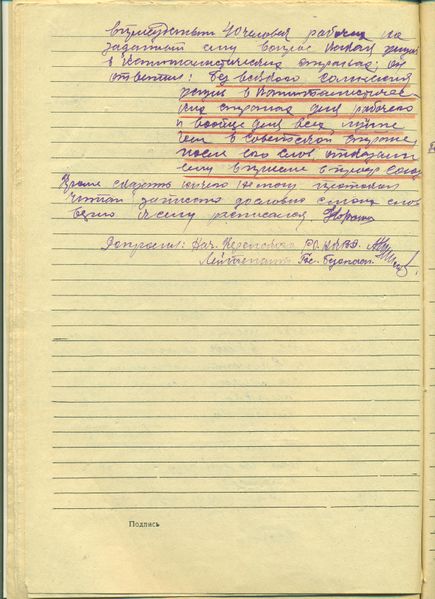 в присутствии 40 человек рабочих на
заданный ему вопрос какая жизнь
в капиталистических странах, он
ответил: без всякого сомнения
жизнь в капиталистичес-
ких странах для рабочего
и вообще для всех лучше
чем в советской стране,
после его слов, отказали
ему в приеме в проф. союз
Кроме сказать ничего не могу протокол
читан записано дословно с моих слов
верно в чем расписался.
Допросил: Нач. РО НКВД
Лейтенант Гос. Безопасн.
Подпись